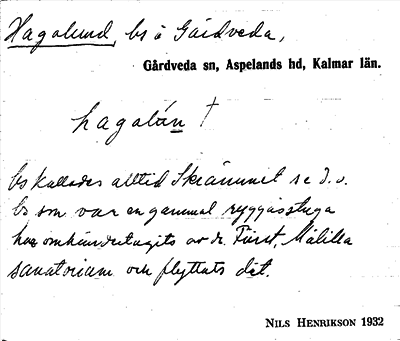 Hagalund, bs å Gårdveda,
Gårdveda sn, Aspelands hd, Kalmar län.
hagalún †
bs kallades alltid Skrammel se d.o.
bs som var en gammal ryggåsstuga
har omhändertagits av dr. Fürst, Målilla
sanatorium och flyttats dit.
NILS HENRIKSON 1932